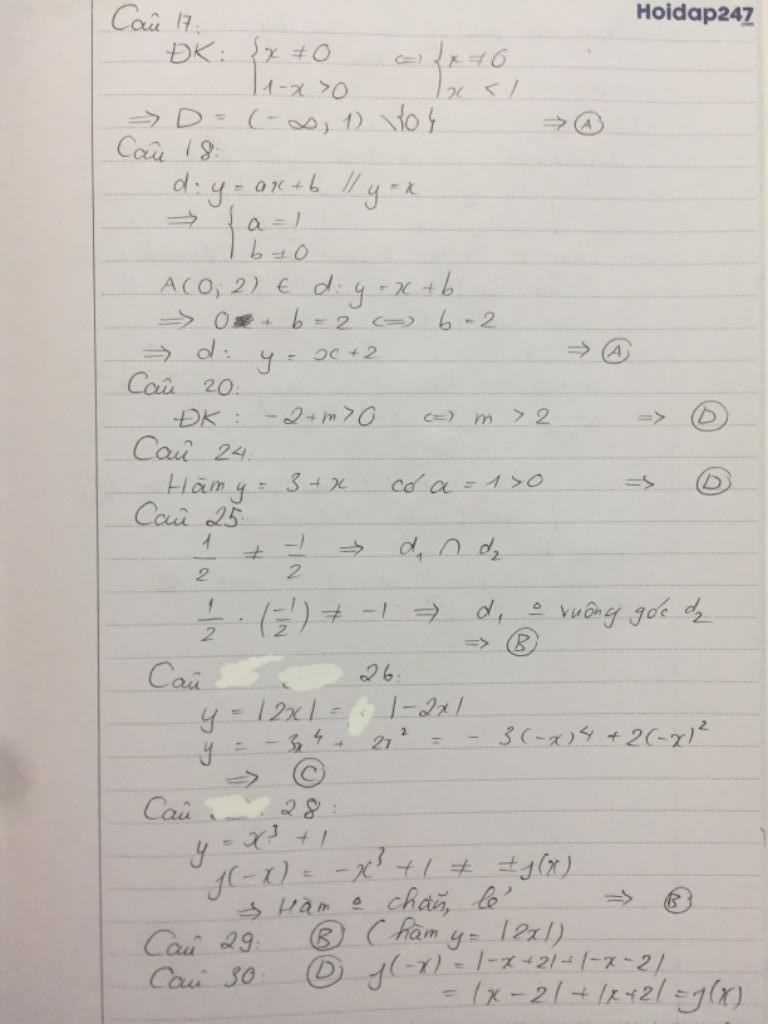 Hoidap247
Câu 17:
ĐK: { x ≠ 0 ⇔ { x ≠ 0
1-x > 0 x < 1
⇒ D = (-∞, 1) \{0} ⇒ A
Câu 18:
d: y = ax+b // y = x
⇒ { a = 1
b ≠ 0
A(0; 2) ∈ d: y = x + b
⇒ 0 + b = 2 ⇔ b = 2
⇒ d: y = x+2 ⇒ A
Câu 20:
ĐK: -2+m>0 ⇔ m > 2 ⇒ D
Câu 24:
Hàm y = 3+x có a = 1>0 ⇒ D
Câu 25:
1/2 ≠ -1/2 ⇒ d₁ ∩ d₂
1/2 . (-1/2) ≠ -1 ⇒ d₁ o vuông góc d₂
⇒ B
Câu 26:
y = |2x| = |-2x|
y = -3x⁴ + 2x² = -3(-x)⁴ + 2(-x)²
⇒ C
Câu 28:
y = x³ + 1
f(-x) = -x³ + 1 ≠ ±f(x)
⇒ Hàm o chẵn, lẻ ⇒ B
Câu 29: B (hàm y = |2x|)
Câu 30: D f(-x) = |-x+2|+|-x-2|
= |x-2|+|x+2| = f(x)